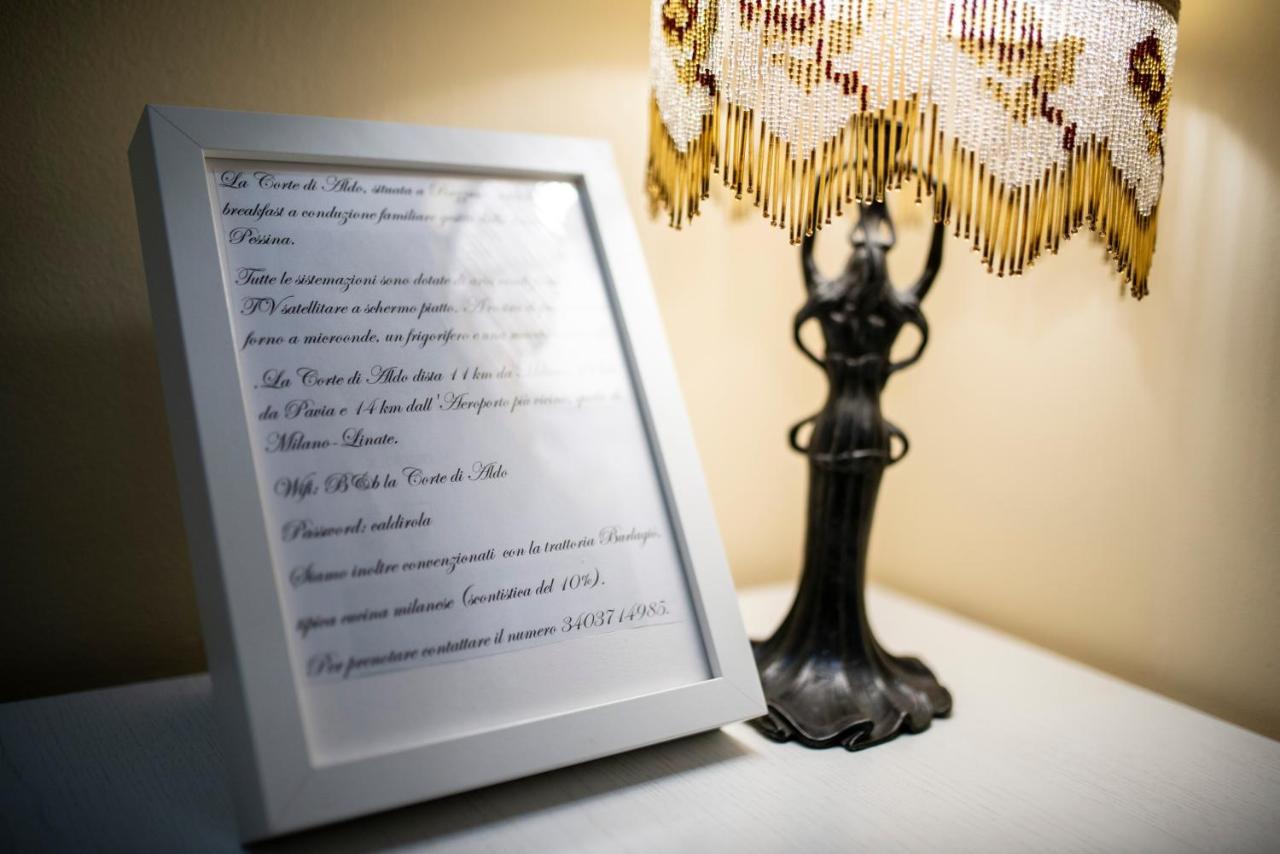 La Corte di Aldo, situata a
breakfast a conduzione familiare
Pessina.
Tutte le sistemazioni sono dotate di aria
TV satellitare a schermo piatto.
forno a microonde, un frigorifero e una
. La Corte di Aldo dista 11 km da
da Pavia e 14 km dall'Aeroporto più vicino, quello di
Milano-Linate.
Wifi: B&b la Corte di Aldo
Password: caldirola
Siamo inoltre convenzionati con la trattoria
tipica cucina milanese (scontistica del 10%).
Per prenotare contattare il numero 3403714985.